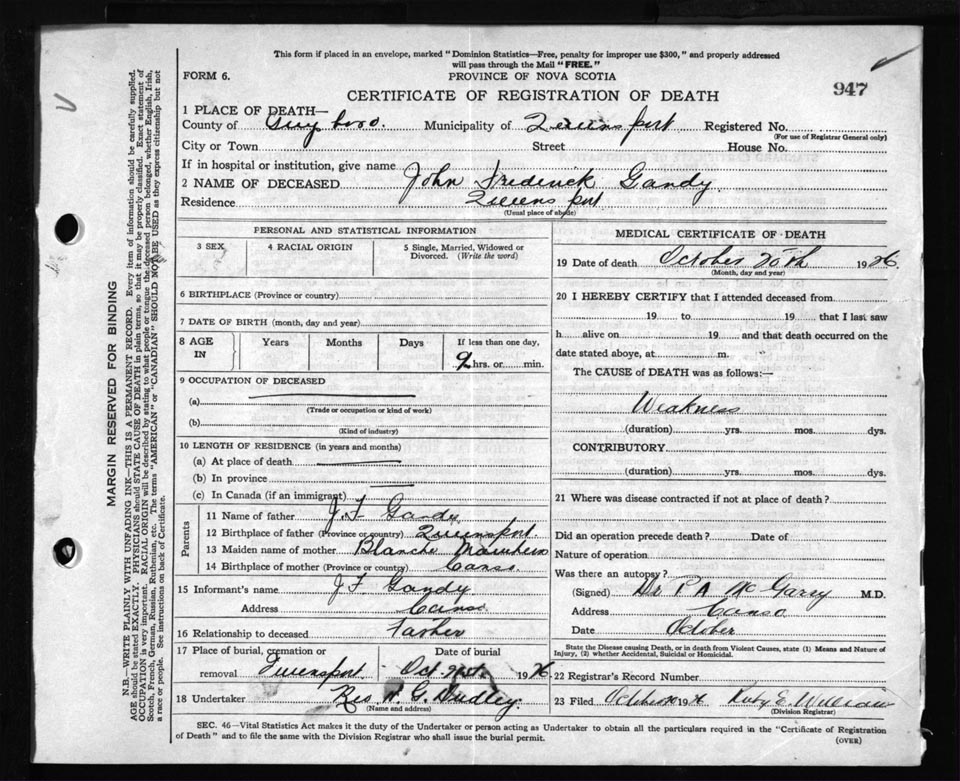 This form if placed in an envelope, marked "Dominion Statistics—Free, penalty for improper use $300," and properly addressed
will pass through the Mail "FREE."
FORM 6.
PROVINCE OF NOVA SCOTIA
CERTIFICATE OF REGISTRATION OF DEATH
947
1 PLACE OF DEATH—
County of Guysboro. Municipality of Queensport Registered No.
(For use of Registrar General only)
City or Town Street House No.
If in hospital or institution, give name
2 NAME OF DECEASED John Fredrick Gandy.
Residence Queensport
(Usual place of abode)
PERSONAL AND STATISTICAL INFORMATION
3 SEX
4 RACIAL ORIGIN
5 Single, Married, Widowed or
Divorced. (Write the word)
6 BIRTHPLACE (Province or country)
7 DATE OF BIRTH (month, day and year)
8 AGE
IN
Years
Months
Days
If less than one day,
9 hrs. or min.
9 OCCUPATION OF DECEASED
(a)
(Trade or occupation or kind of work)
(b)
(Kind of industry)
10 LENGTH OF RESIDENCE (in years and months)
(a) At place of death
(b) In province
(c) In Canada (if an immigrant)
Parents
11 Name of father J.F Gandy.
12 Birthplace of father (Province or country) Queensport.
13 Maiden name of mother Blanche
14 Birthplace of mother (Province or country) Canso.
15 Informant's name J F Gandy
Address Canso
16 Relationship to deceased Father
17 Place of burial, cremation or
removal Queensport
Date of burial
Oct 21st 1926
18 Undertaker Rev A. G. Dudley
(Name and address)
MEDICAL CERTIFICATE OF DEATH
19 Date of death October 20th 1926.
(Month, day and year)
20 I HEREBY CERTIFY that I attended deceased from
19 to 19 that I last saw
h alive on 19 and that death occurred on the
date stated above, at m.
The CAUSE of DEATH was as follows:—
Weakness
(duration) yrs. mos. dys.
CONTRIBUTORY
(duration) yrs. mos. dys.
21 Where was disease contracted if not at place of death?
Did an operation precede death? Date of
Nature of operation
Was there an autopsy?
(Signed) Dr P A McGarry M.D.
Address Canso
Date October
State the Disease causing Death, or in death from Violent Causes, state (1) Means and Nature of
Injury, (2) whether Accidental, Suicidal or Homicidal.
22 Registrar's Record Number
23 Filed October 1926 Ruby E. Williams
(Division Registrar)
SEC. 46—Vital Statistics Act makes it the duty of the Undertaker or person acting as Undertaker to obtain all the particulars required in the "Certificate of Registration
of Death" and to file the same with the Division Registrar who shall issue the burial permit.
(OVER)
MARGIN RESERVED FOR BINDING
N.B.—WRITE PLAINLY WITH UNFADING INK—THIS IS A PERMANENT RECORD. Every item of information should be carefully supplied.
AGE should be stated EXACTLY. PHYSICIANS should STATE CAUSE OF DEATH in plain terms, so that it may be properly classified. Exact statement of
OCCUPATION is very important. RACIAL ORIGIN will be described by stating to what people or tongue the deceased person belonged, whether English, Irish,
Scotch, French, German, Russian, Ruthenian, etc. The terms "AMERICAN" or "CANADIAN" SHOULD NOT BE USED as they express citizenship but not
a race or people. See instructions on back of Certificate.